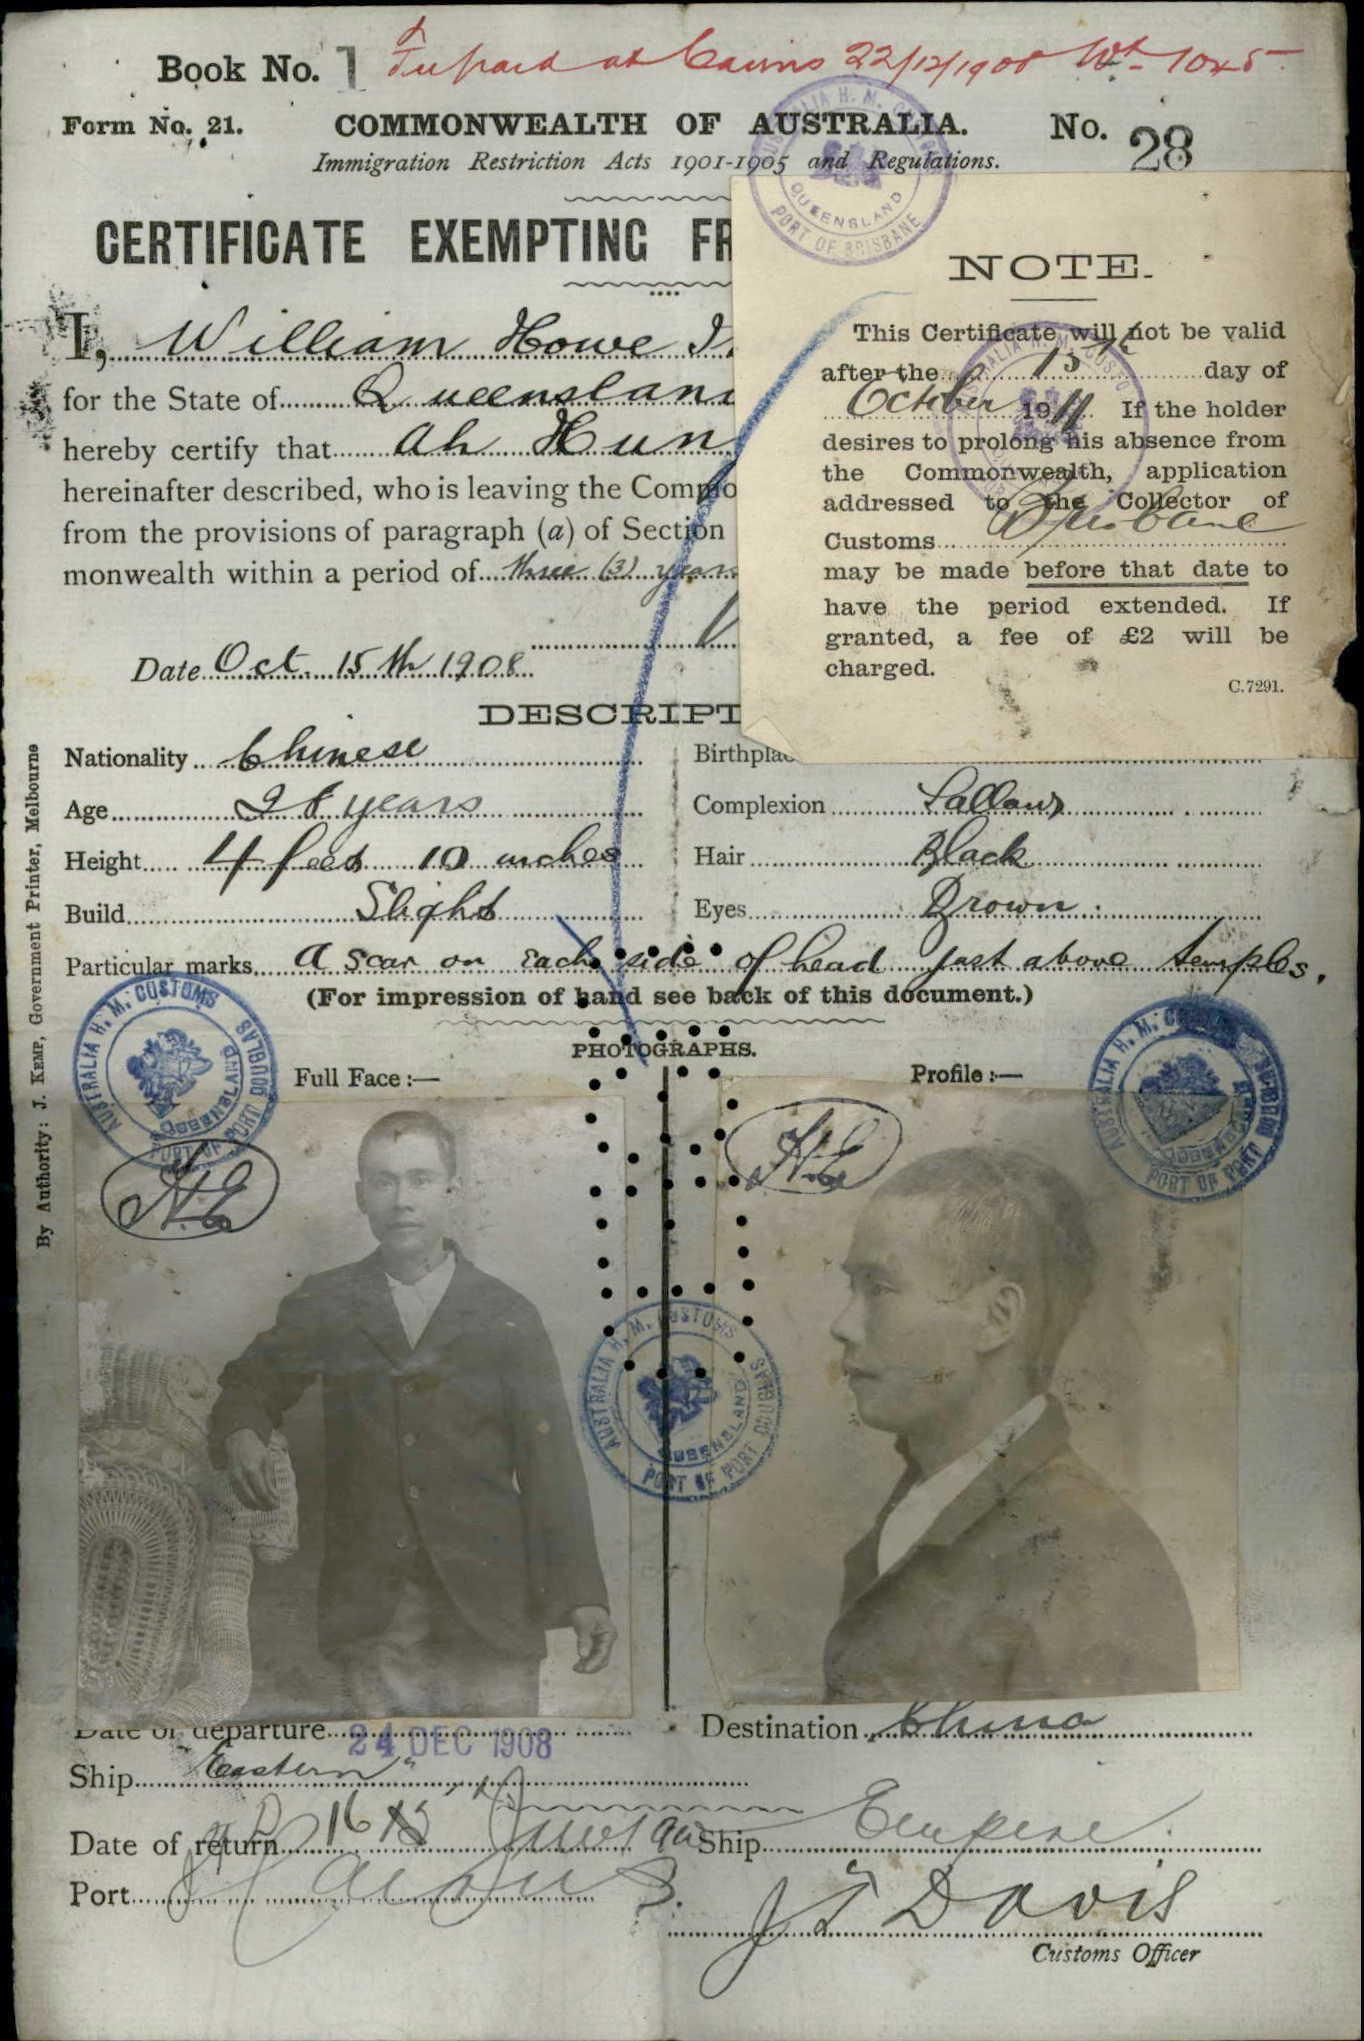 Book No. 1 at Cairns 22/12/1908
Form No. 21. COMMONWEALTH OF AUSTRALIA. No. 28
Immigration Restriction Acts 1901-1905 and Regulations.
CERTIFICATE EXEMPTING FR
I, William Howe I.
for the State of Queensland
hereby certify that Ah Hun
hereinafter described, who is leaving the Commo
from the provisions of paragraph (a) of Section
monwealth within a period of three (3) years
Date Oct. 15th 1908
NOTE.
This Certificate will not be valid
after the 15th day of
October 1911 If the holder
desires to prolong his absence from
the Commonwealth, application
addressed to the Collector of
Customs Brisbane
may be made before that date to
have the period extended. If
granted, a fee of £2 will be
charged.
C.7291.
AUSTRALIA H. M. CUSTOMS
QUEENSLAND
PORT OF BRISBANE
DESCRIPT
Nationality Chinese Birthplac
Age 28 years Complexion Sallow
Height 4 feet 10 inches Hair Black
Build Slight Eyes Brown
Particular marks A scar on each side of head just above temples.
(For impression of hand see back of this document.)
PHOTOGRAPHS.
Full Face :— Profile :—
AUSTRALIA H. M. CUSTOMS
QUEENSLAND
PORT OF PORT DOUGLAS
H.E
H.E
AUSTRALIA H. M. CUSTOMS
QUEENSLAND
PORT OF PORT DOUGLAS
AUSTRALIA H. M. CUSTOMS
QUEENSLAND
PORT OF PORT DOUGLAS
Date of departure 24 DEC 1908 Destination China
Ship "Eastern"
Date of return 16 Ship Empire.
Port Cairns.
Customs Officer
By Authority: J. KEMP, Government Printer, Melbourne